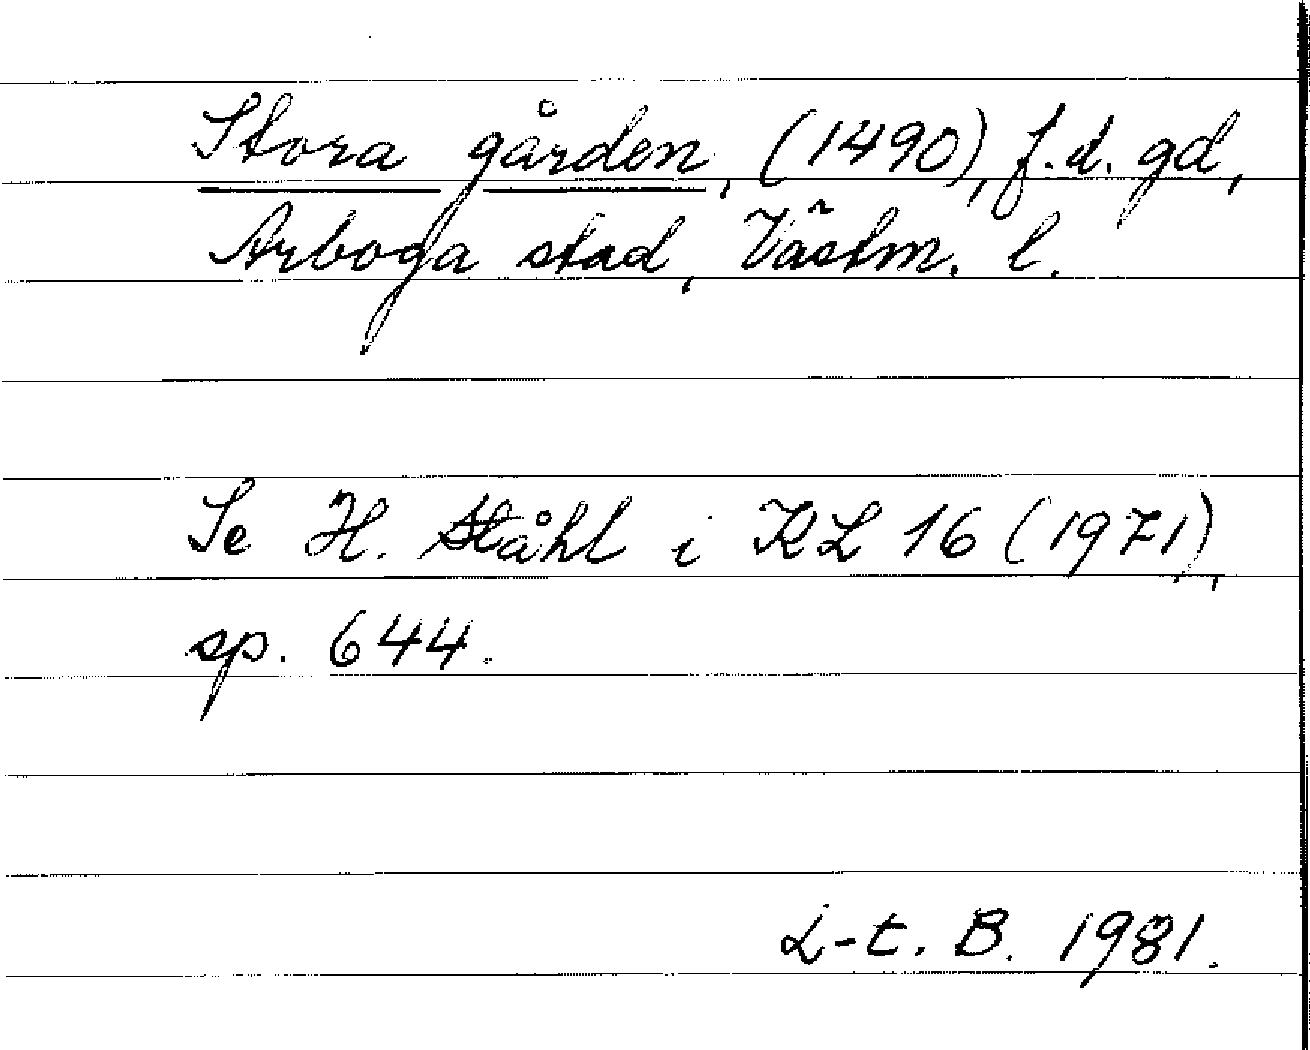 Stora gården, (1490), f.d. gd,
Arboga stad, Västm. l.
Se H. Ståhl i KL 16 (1971),
sp. 644.
L-t. B. 1981.